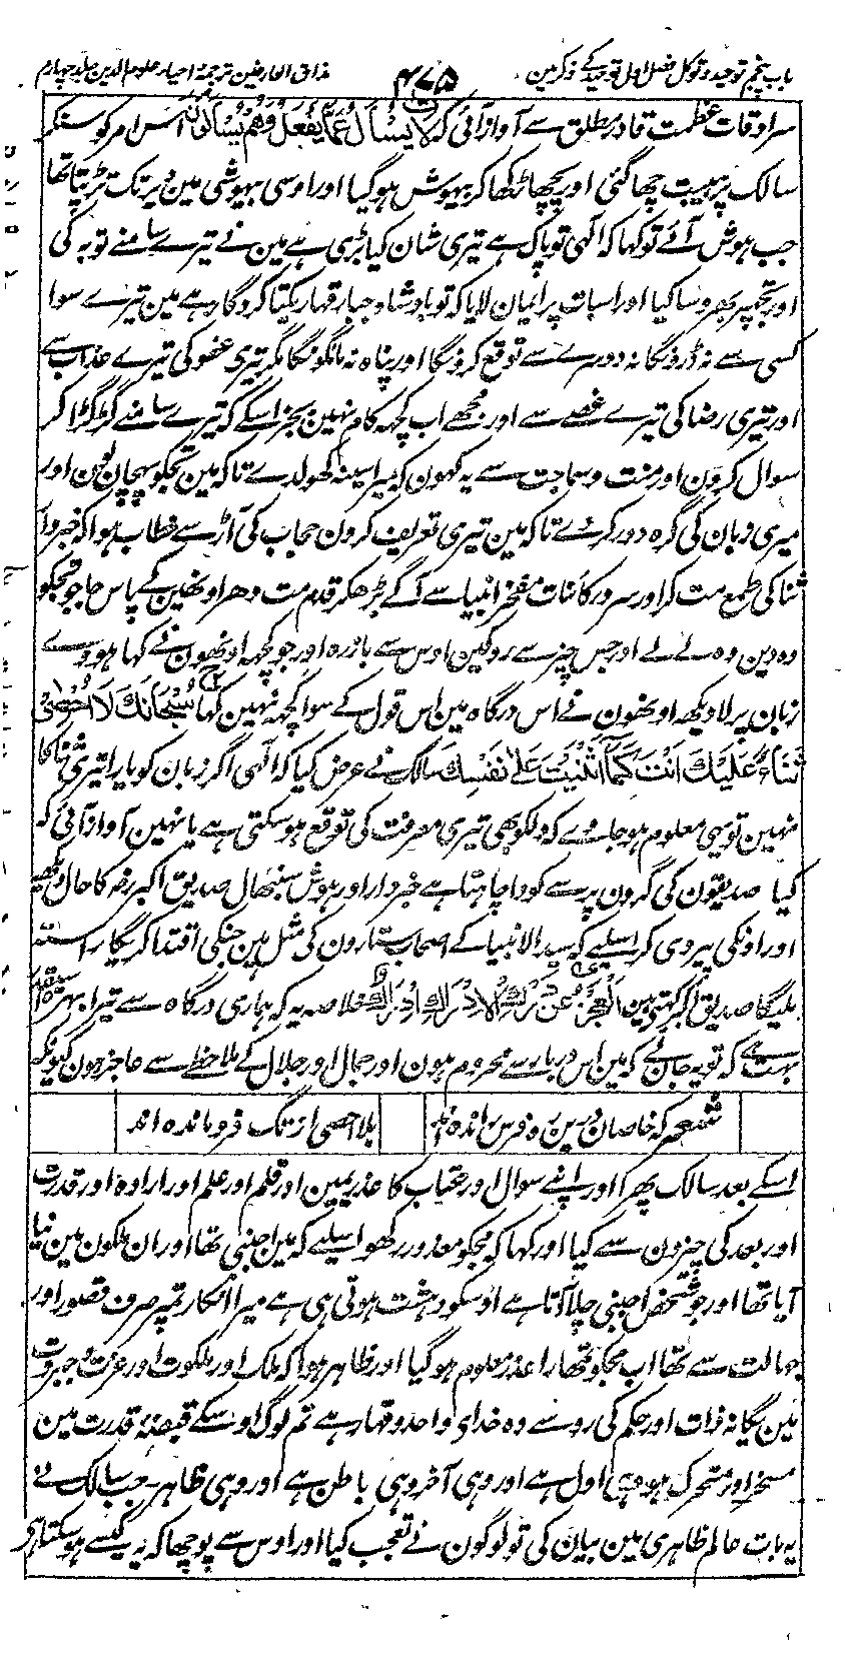 باب پنجم توحید و توکل فصل اول توحید کے ذکر مین ۴۷۵ مذاق العارفین ترجمۂ احیاء علوم الدین جلد چہارم
سراوقات عظمت قادر مطلق سے آواز آئی کہ لَا يُسْأَلُ عَمَّا يَفْعَلُ وَهُمْ يُسْأَلُونَ اس امر کو سنکر
سالک پر ہیبت چھا گئی اور پچھاڑ کھا کر بیہوش ہو گیا اور اوسی بیہوشی مین دیر تک تڑپتا تھا
جب ہوش آئے تو کہا کہ الٰہی تو پاک ہے تیری شان کیا بڑی ہے مین نے تیرے سامنے توبہ کی
اور تجھپر بھروسا کیا اور اسبات پر ایمان لایا کہ تو بادشاہ جبار قہار یکتا کردگار ہے مین تیرے سوا
کسی سے نہ ڈرونگا نہ دوسرے سے توقع کرونگا اور پناہ نہ مانگونگا مگر تیری عفو کی تیرے عذاب سے
اور تیری رضا کی تیرے غصے سے اور مجھے اب کچھہ کام نہین بجز اسکے کہ تیرے سامنے گڑگڑا کر
سوال کرون اور منت و سماجت سے یہ کہون کہ میرا سینہ کھولدے تاکہ مین تجکو پہچان لون اور
میری زبان کی گرہ دور کردے تاکہ مین تیری تعریف کرون حجاب کی آڑ سے خطاب ہوا کہ خبردار
ثنا کی طمع مت کر اور سرور کائنات مفخر انبیا سے آگے بڑھکر قدم مت دھر اونھین کے پاس جا جو تجکو
وہ دین وہ لے لے اور جس چیز سے روکین اوس سے باز رہ اور جو کچھہ اونھون نے کہا ہو وے
زبان پر لا دیکھہ اونھون نے اس درگاہ مین اس قول کے سوا کچھہ نہین کہا سُبْحَانَكَ لَا أُحْصِي
ثَنَاءً عَلَيْكَ أَنْتَ كَمَا أَثْنَيْتَ عَلَى نَفْسِكَ سالک نے عرض کیا کہ الٰہی اگر زبان کو یارا تیری ثنا کا
نہین تو یہی معلوم ہو جاوے کہ دل کو بھی تیری معرفت کی توقع ہو سکتی ہے یا نہین آواز آئی کہ
کیا صدیقون کی گردن پر سے کودا چاہتا ہے خبردار اور ہوش سنبھال صدیق اکبر رضہ کا حال دیکھہ
اور اونکی پیروی کر اسلیے کہ سید الانبیا کے اصحاب ستارون کی مثل ہین جنکی اقتدا کریگا راستہ
ملیگا صدیق اکبر کہتے ہین اَلْعَجْزُ عَنْ دَرْكِ الْإِدْرَاكِ إِدْرَاكٌ خلاصہ یہ کہ ہماری درگاہ سے تیرا بہرہ اسیقدر
بہت ہے کہ تو یہ جانے کہ مین اس دربار سے محروم ہون اور جمال اور جلال کے ملاحظے سے عاجز ہون کیونکہ
شعر کہ خاصان درین رہ فرس راندہ اند بلا احصی از تگ فرو ماندہ اند
اسکے بعد سالک پھرا اور اپنے سوال اور عتاب کا عذر یمین اور قلم اور علم اور ارادہ اور قدرت
اور بعد کی چیزون سے کیا اور کہا کہ مجکو معذور رکھو اسلیے کہ مین اجنبی تھا اور ان ملکون مین نیا
آیا تھا اور جو شخص اجنبی چلا آتا ہے اوسکو دہشت ہوتی ہی ہے میرا انکار تمپر صرف قصور اور
جہالت سے تھا اب مجکو تمھارا عذر معلوم ہو گیا اور ظاہر ہوا کہ ملک اور ملکوت اور عزت و جبروت
مین یگانہ ذات اور حکم کی رو سے وہ خدای واحد و قہار ہے تم لوگ اوسکے قبضۂ قدرت مین
مسخر اور متحرک ہو وہی اول ہے اور وہی آخر وہی باطن ہے اور وہی ظاہر۔ جب سالک نے
یہ بات عالم ظاہری مین بیان کی تو لوگون نے تعجب کیا اور اوس سے پوچھا کہ یہ کیسے ہو سکتا ہی